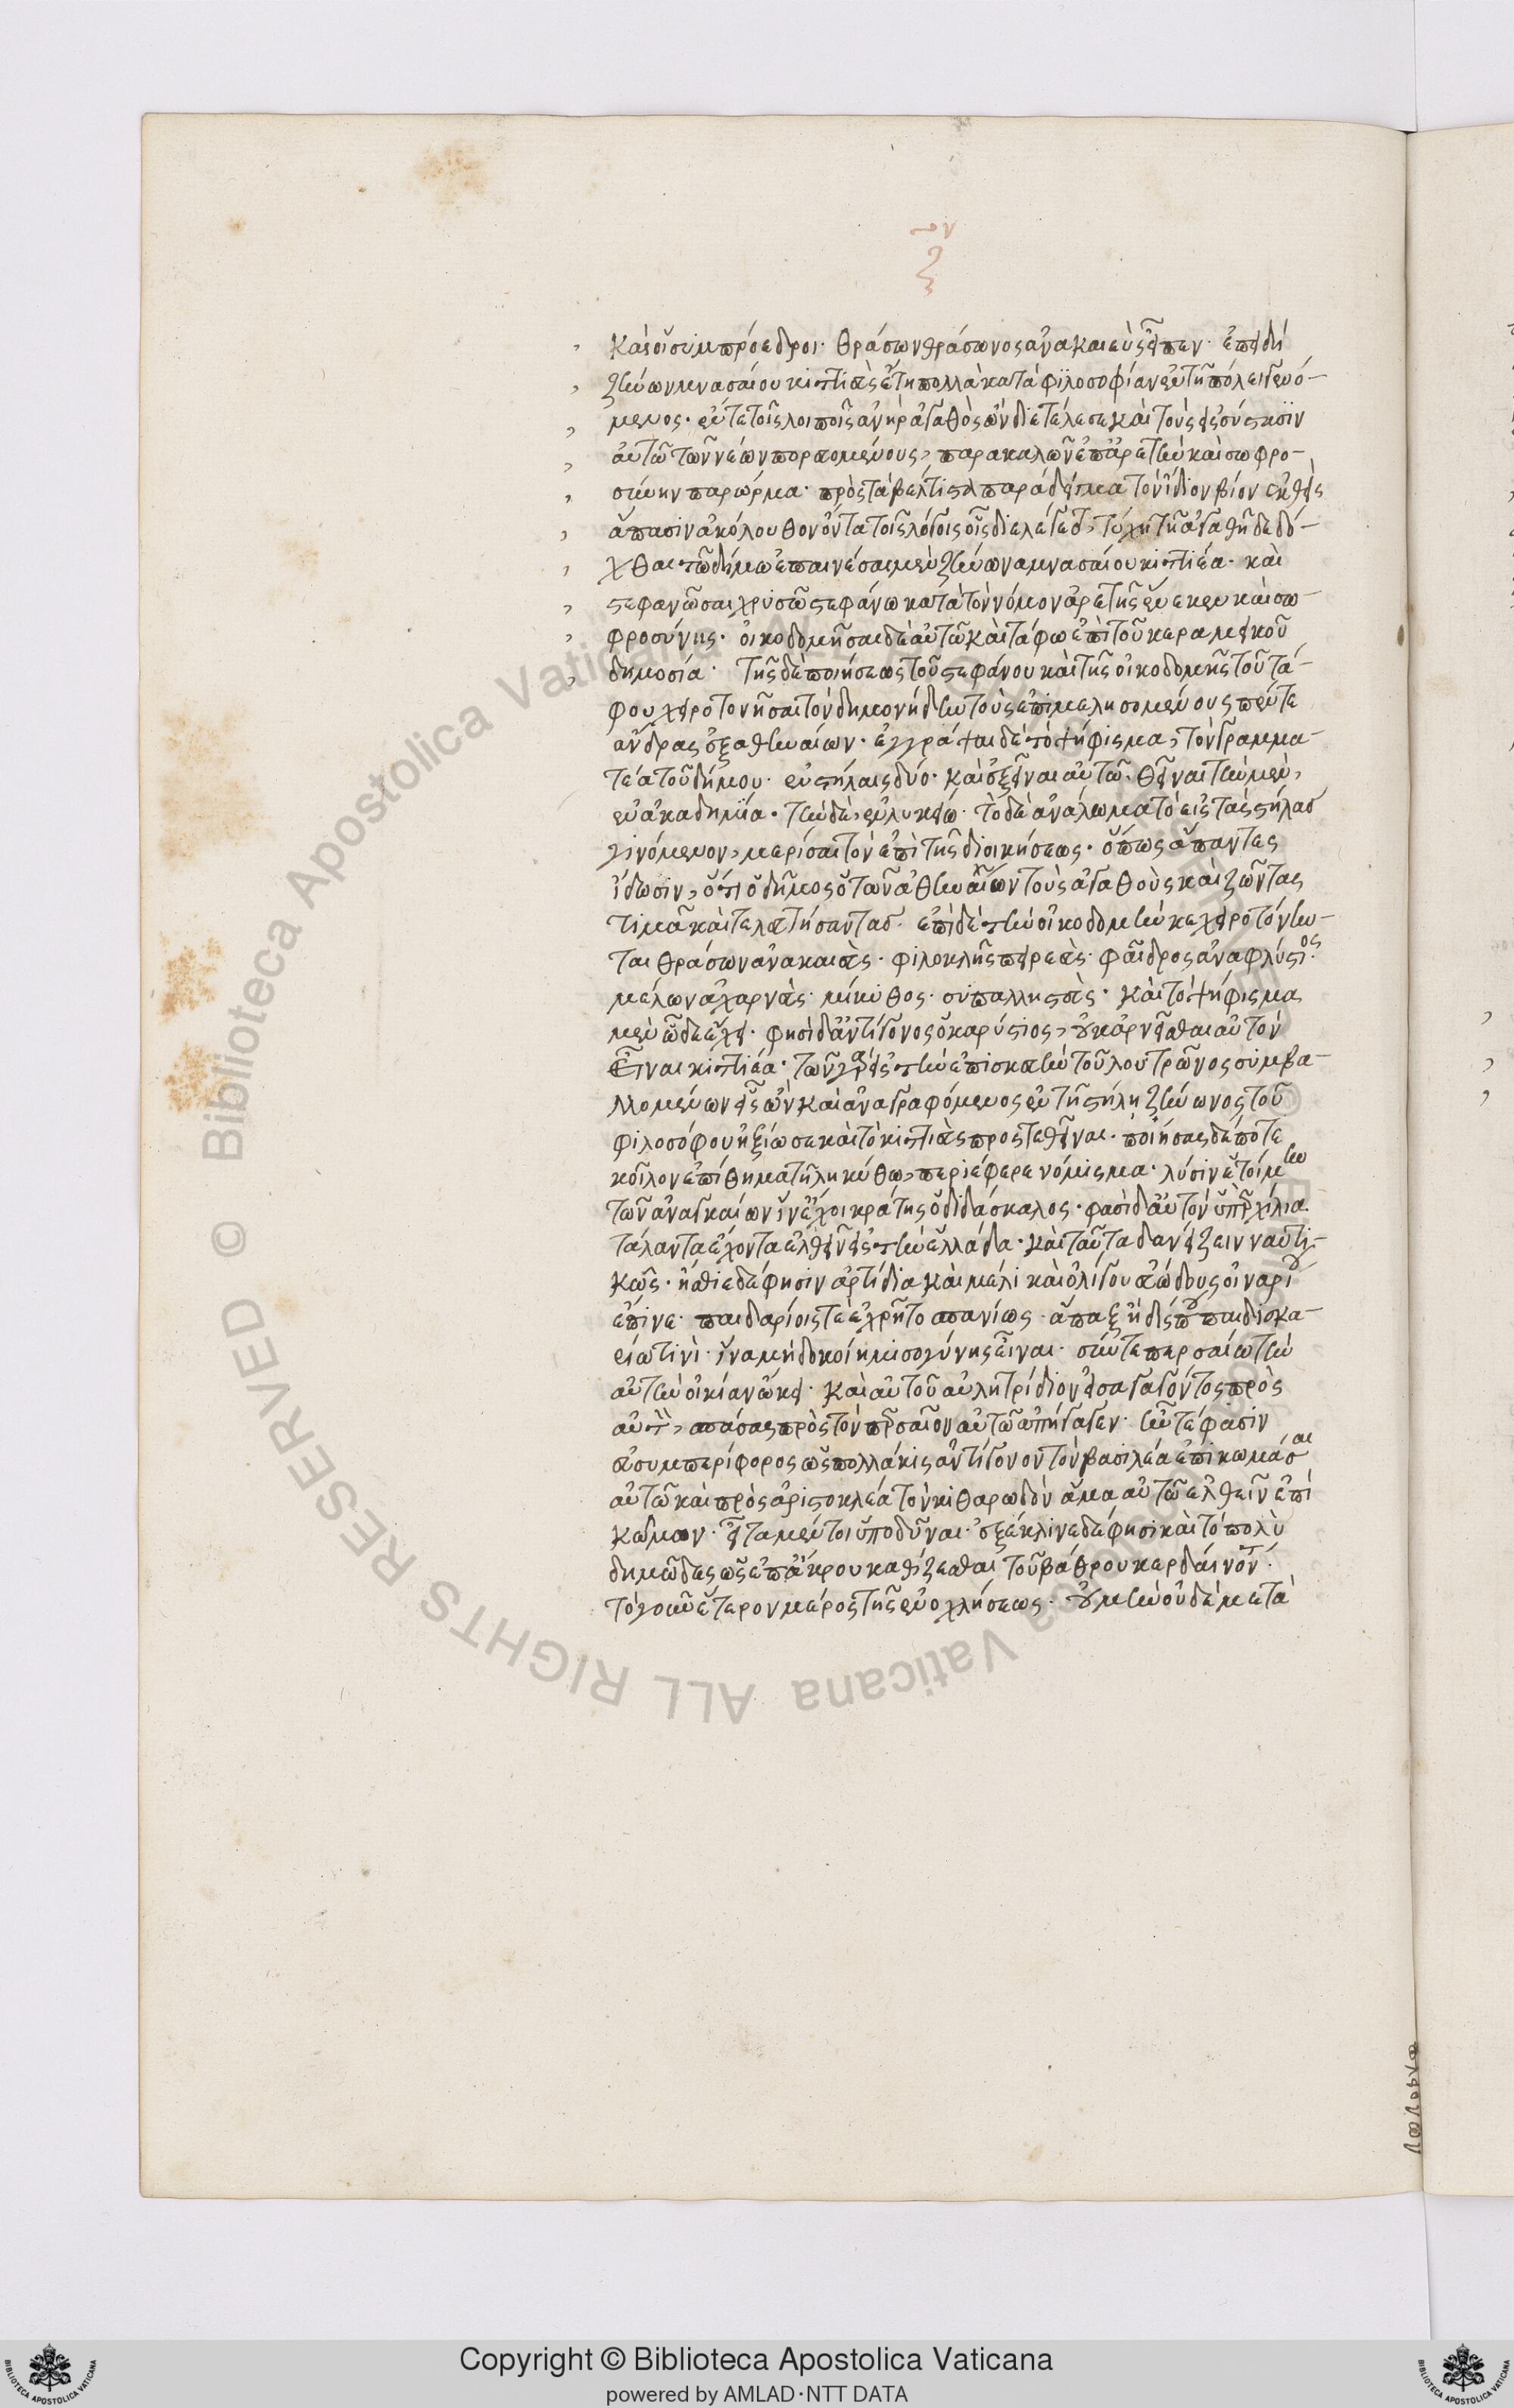 καὶ οἱ συμπρόεδροι· θράσων θράσωνος ἀνακαιεὺς εἶπεν· ἐπειδὴ
ζήνων μνασαίου κιττιὰς ἔτη πολλὰ κατὰ φιλοσοφίαν ἐν τῇ πόλει γενό-
μενος· ἔν τε τοῖς λοιποῖς ἀνὴρ ἀγαθὸς ὢν διετέλεσε καὶ τοὺς εἰς σύστασϊν
αὐτῶ τῶν νέων πορευομένους, παρακαλῶν ἐπ' ἀρετὴν καὶ σωφρο-
σύνην παρώρμα· πρὸς τὰ βέλτιστα παράδειγμα τὸν ἴδιον βίον ἐκθεὶς
ἅπασιν ἀκόλουθον ὄντα τοῖς λόγοις οἷς διελέγετ, τύχῃ τῇ ἀγαθῇ δεδό-
χθαι τῶ δήμω ἐπαινέσαι μὲν ζήνωνα μνασαίου κιττιέα· καὶ
στεφανῶσαι χρυσῶ στεφάνω κατὰ τὸν νόμον ἀρετῆς ἕνεκεν καὶ σω-
φροσύνης· οἰκοδομῆσαι δὲ αὐτῶ καὶ τάφω ἐπὶ τοῦ κεραμεικοῦ
δημοσία· τῆς δὲ ποιήσεως τοῦ στεφάνου καὶ τῆς οἰκοδομῆς τοῦ τά-
φου χειροτονῆσαι τὸν δῆμον ἤδη τοὺς ἐπιμελησομένους πέντε
ἄνδρας ἐξ ἀθηναίων· ἐγγράψαι δὲ τὸ ψήφισμα, τὸν γραμμα-
τέα τοῦ δήμου· ἐν στήλαις δύο· καὶ ἐξεῖναι αὐτῶ· θεῖναι τὴν μὲν,
ἐν ἀκαδημία· τὴν δὲ, ἐν λυκείω· τὸ δὲ ἀνάλωμα τὸ εἰς τὰς στήλας
γινόμενον, μερίσαι τὸν ἐπὶ τῆς διοικήσεως· ὅπως ἅπαντες
ἴδωσιν, ὅτι ὁ δῆμος ὁ τῶν ἀθηναίων τοὺς ἀγαθοὺς καὶ ζῶντας
τιμᾶ καὶ τελευτήσαντας· ἐπὶ δὲ τὴν οἰκοδομὴν κεχειροτόνην-
ται θράσων ἀνακαιεὰς· φιλοκλῆς πειρεὰς· φαῖδρος ἀναφλύστιος·
μέλων ἀχαρνὰς· μίκυθος· συπαλληστὰς· καὶ τὸ ψήφισμα
μὲν ὧδε ἔχει· φησὶ δ' ἀντίγονος ὁ καρύστιος, οὐκ ἀρνεῖσθαι αὐτὸν
εἶναι κιττιέα· τῶν γὰρ εἰς τὴν ἐπισκευὴν τοῦ λουτρῶνος συμβα-
λλομένων εἷς ὢν καὶ ἀναγραφόμενος ἐν τῇ στήλῃ ζήνωνος τοῦ
φιλοσόφου ἠξίωσε καὶ τὸ κιττιὰς προστεθεῖναι· ποιήσας δέ ποτε
κοῖλον ἐπίθημα τῇ ληκύθω, περιέφερε νόμισμα· λύσιν ἑτοίμην
τῶν ἀναγκαίων ἵν' ἔχοι κράτης ὁ διδάσκαλος· φασὶ δ' αὐτὸν ὑπὲρ χίλια
τάλαντα ἔχοντα ἐλθεῖν εἰς τὴν ἑλλάδα· καὶ ταῦτα δανείζειν ναυτι-
κῶς· ἤσθιε δέ φησιν ἀρτίδια καὶ μέλι καὶ ὀλίγου εὐώδους οἰναρίου
ἔπινε· παιδαρίοις τε ἐχρῆτο σπανίως· ἅπαξ ἢ δίς που παιδισκα-
ρίω τινὶ· ἵνα μὴ δοκοίη μισογύνης εἶναι· σύν τε περσαίω τὴν
αὐτὴν οἰκίαν ὤκει· καὶ αὐτοῦ αὐλητρίδιον εἰσαγαγόντος πρὸς
αὐτὸν, σπάσας πρὸς τὸν περσαῖον αὐτῶ ἀπήγαγεν· ἦν τέ φασιν
εὐσυμπερίφορος ὡς πολλάκις ἀντίγονον τὸν βασιλέα ἐπικωμάσαι
αὐτῶ καὶ πρὸς ἀριστοκλέα τὸν κιθαρωδὸν ἅμα αὐτῶ ἐλθεῖν ἐπὶ
κῶμον· εἶτα μέντοι ὑποδῦναι· ἐξέκλινε δέ φησι καὶ τὸ πολὺ
δημῶδες ὡς ἐπ' ἄκρου καθίζεσθαι τοῦ βάθρου κερδαίνοντ·
τὸ γοῦν ἕτερον μέρος τῆς ἐνοχλήσεως· οὐ μὴν οὐδὲ μετὰ
© Biblioteca Apostolica Vaticana ALL RIGHTS RESERVED
Copyright © Biblioteca Apostolica Vaticana
powered by AMLAD·NTT DATA
BIBLIOTECA APOSTOLICA VATICANA
BIBLIOTECA APOSTOLICA VATICANA